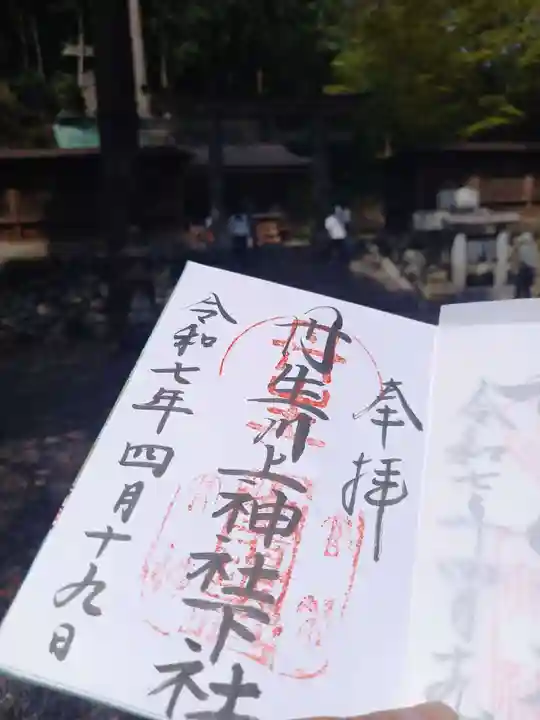 奉拝
丹生川上神社下社
令和七年四月十九日